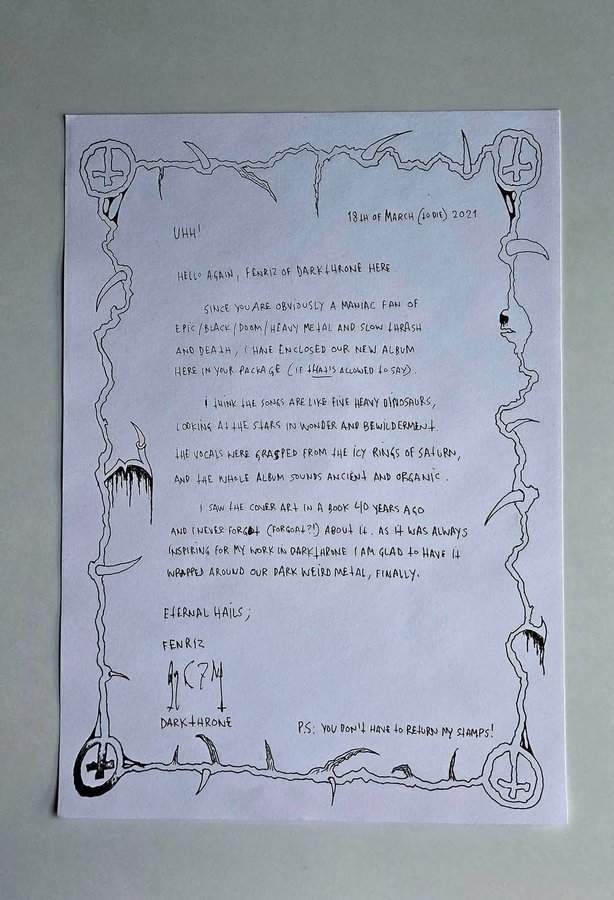 18th of March (to die) 2021
UHH!
Hello again, Fenriz of Darkthrone here.
Since you are obviously a maniac fan of
epic/black/doom/heavy metal and slow thrash
and death, i have enclosed our new album
here in your package (if that is allowed to say).
i think the songs are like five heavy dinosaurs,
looking at the stars in wonder and bewilderment.
The vocals were grasped from the icy rings of Saturn,
and the whole album sounds ancient and organic.
i saw the cover art in a book 40 years ago
and i never forgot (forgoat?!) about it. As it was always
inspiring for my work in Darkthrone i am glad to have it
wrapped around our dark weird metal, finally.
Eternal hails;
Fenriz
Darkthrone
P.S: You don't have to return my stamps!